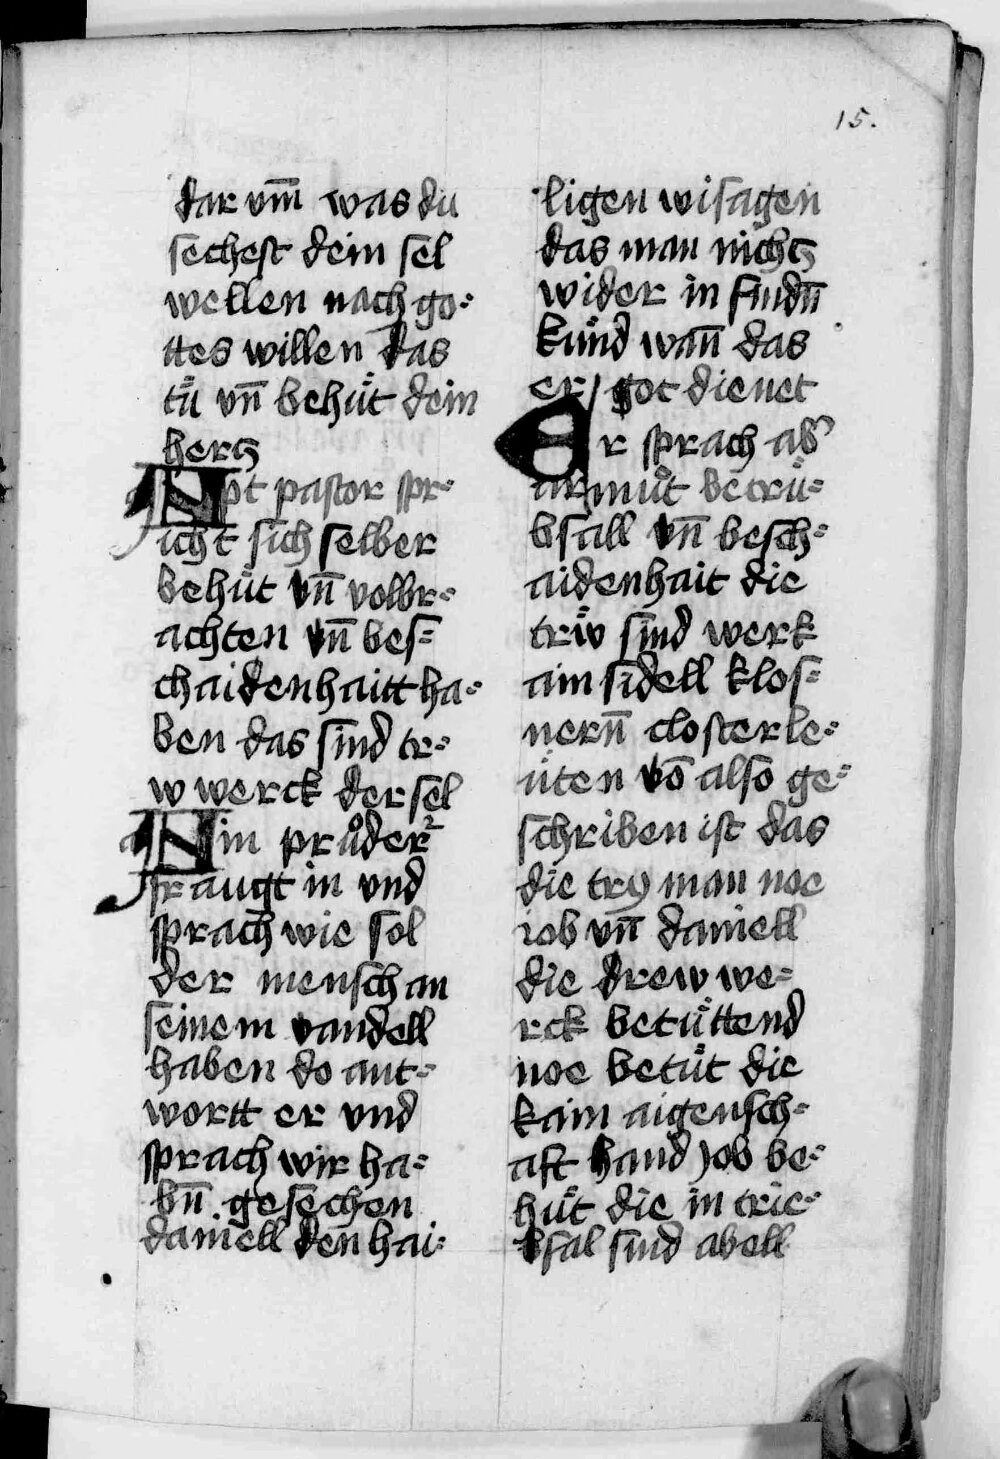 15.
dar vm̄ was du
sechest dein sel
wellen nach go⸗
ttes willen das
tuͤ vn̄ behuͤt dein
hercz
Apt pastor spr⸗
icht sich selber
behuͤt vn̄ volbr⸗
achten vn̄ bes⸗
chaidenhaitt ha⸗
ben das sind tr⸗
w werck der sel
Ain pruͦder
fraugt in vnd
sprach wie sol
der mensch an
seinem vandell
haben do ant⸗
wortt er vnd
sprach wir ha⸗
bn̄ gesechen
daniell den hai⸗
ligen wisagen
das man nichcz
wider in findn̄
kuͤnd wan̄ das
er got dienet
Er sprach ab
armuͦt betruͤ⸗
bsall vn̄ besch⸗
aidenhait die
trẅ sind werk
ain sidell klos⸗
nern̄ closterle⸗
üten vō also ge⸗
schriben ist das
die try man noe
iob vn̄ daniell
die drew we⸗
rck betuͤttend
noe betuͤt die
kain aigensch⸗
aft hand Job be⸗
huͤt die in trie⸗
bsal sind abell